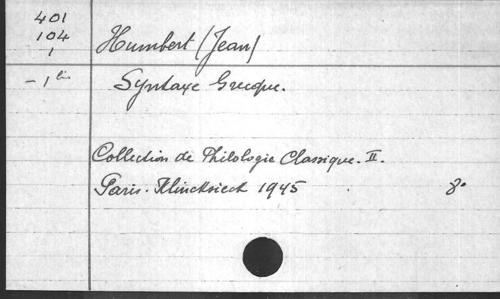 401
104
1
Humbert (Jean)
- 1 bis
Syntaxe Grecque.
Collection de Philologie Classique. II.
Paris. Klincksieck 1945 8°